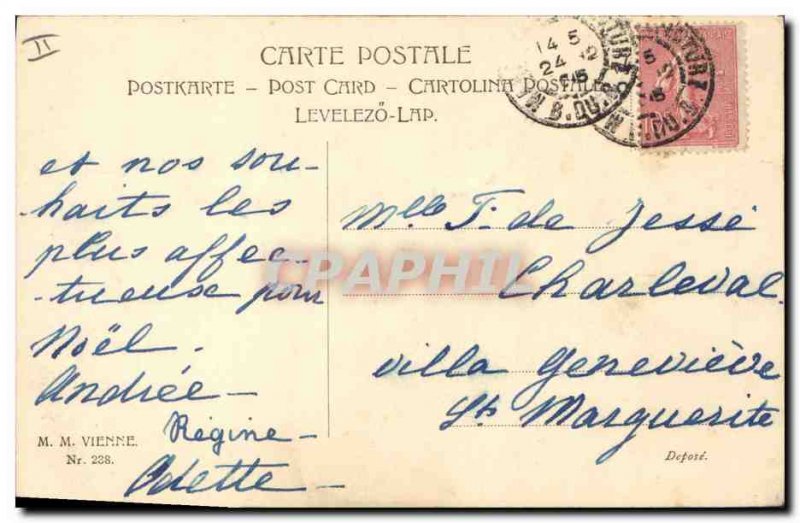 II
CARTE POSTALE
POSTKARTE – POST CARD – CARTOLINA POSTALE
LEVELEZŐ-LAP.
et nos sou-
haits les
plus affec-
-tueuse pour
Noël.
Andrée –
Régine –
Odette –
M. M. VIENNE.
Nr. 238.
Mlle T. de Jessé
Charleval
villa Geneviève
St Marguerite
Deposé.
CPAPHIL
14 5
24 12